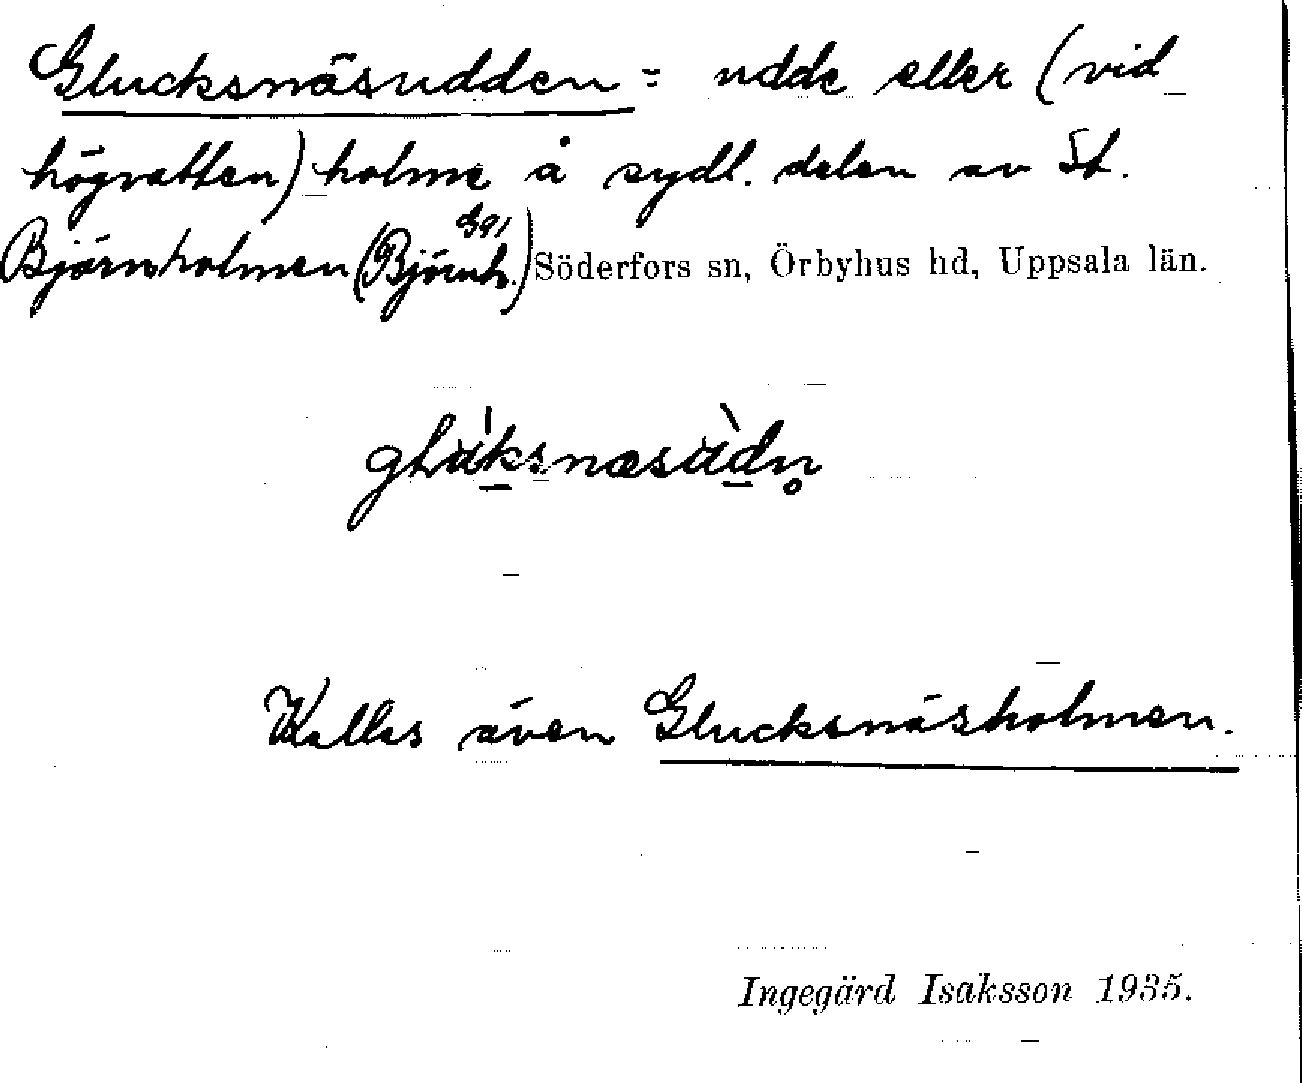 Glucksnäsudden = udde eller (vid
högvatten) holme å sydl. delen av St.
Björnholmen (Björnh.) Söderfors sn, Örbyhus hd, Uppsala län.
Kallas även Glucksnäsholmen.
Ingegärd Isaksson 1935.